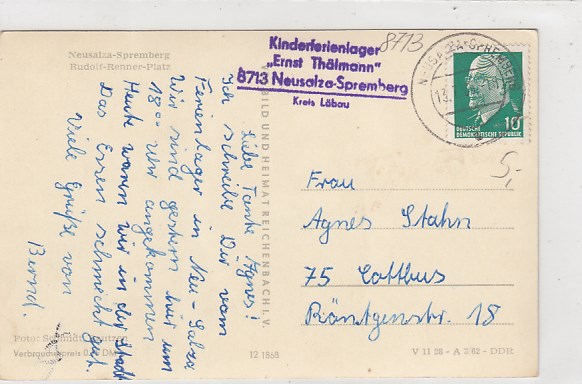 Neusalza-Spremberg
Rudolf-Renner-Platz
Kinderferienlager
„Ernst Thälmann“
8713 Neusalza-Spremberg
Kreis Löbau
8713
NEUSALZA-SPREMBERG
13.
10
DEUTSCHE
DEMOKRATISCHE REPUBLIK
5,-
Liebe Tante Agnes!
Ich schreibe Dir vom
Ferienlager in Neu-Salza
Wir sind gestern hier um
18⁰⁰ Uhr angekommen
Heute waren wir in der Stadt
Das Essen schmeckt gut.
Viele Grüße von
Bernd.
BILD UND HEIMAT REICHENBACH I. V.
Frau
Agnes Stahn
75 Cottbus
Röntgenstr. 18
Foto:
Verbraucherpreis DM
12 1668
V 11 28 - A 3/62 - DDR